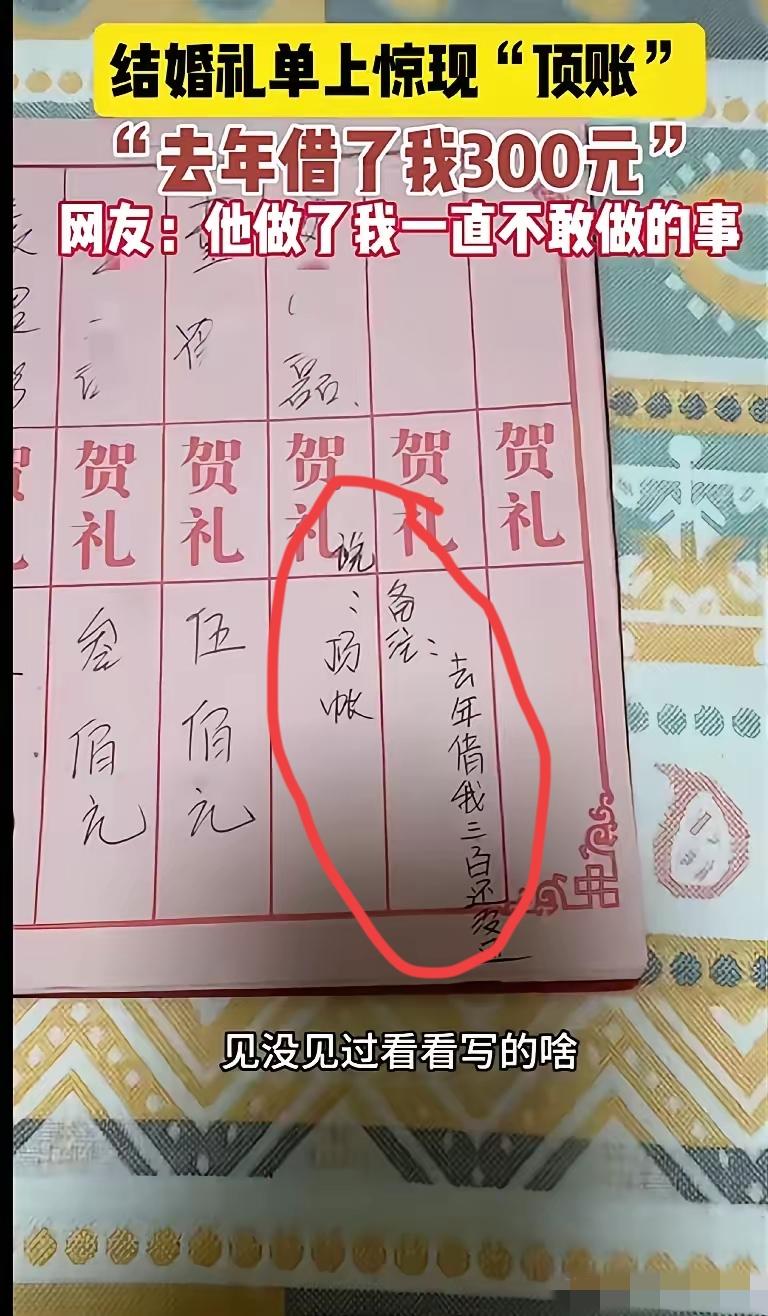 结婚礼单上惊现“顶账”
“去年借了我300元”
网友：他做了我一直不敢做的事
磊
贺礼
贺礼
贺礼
贺礼
贺礼
叁佰元
伍佰元
说：顶帐
备注：
去年借我三百还没
见没见过看看写的啥